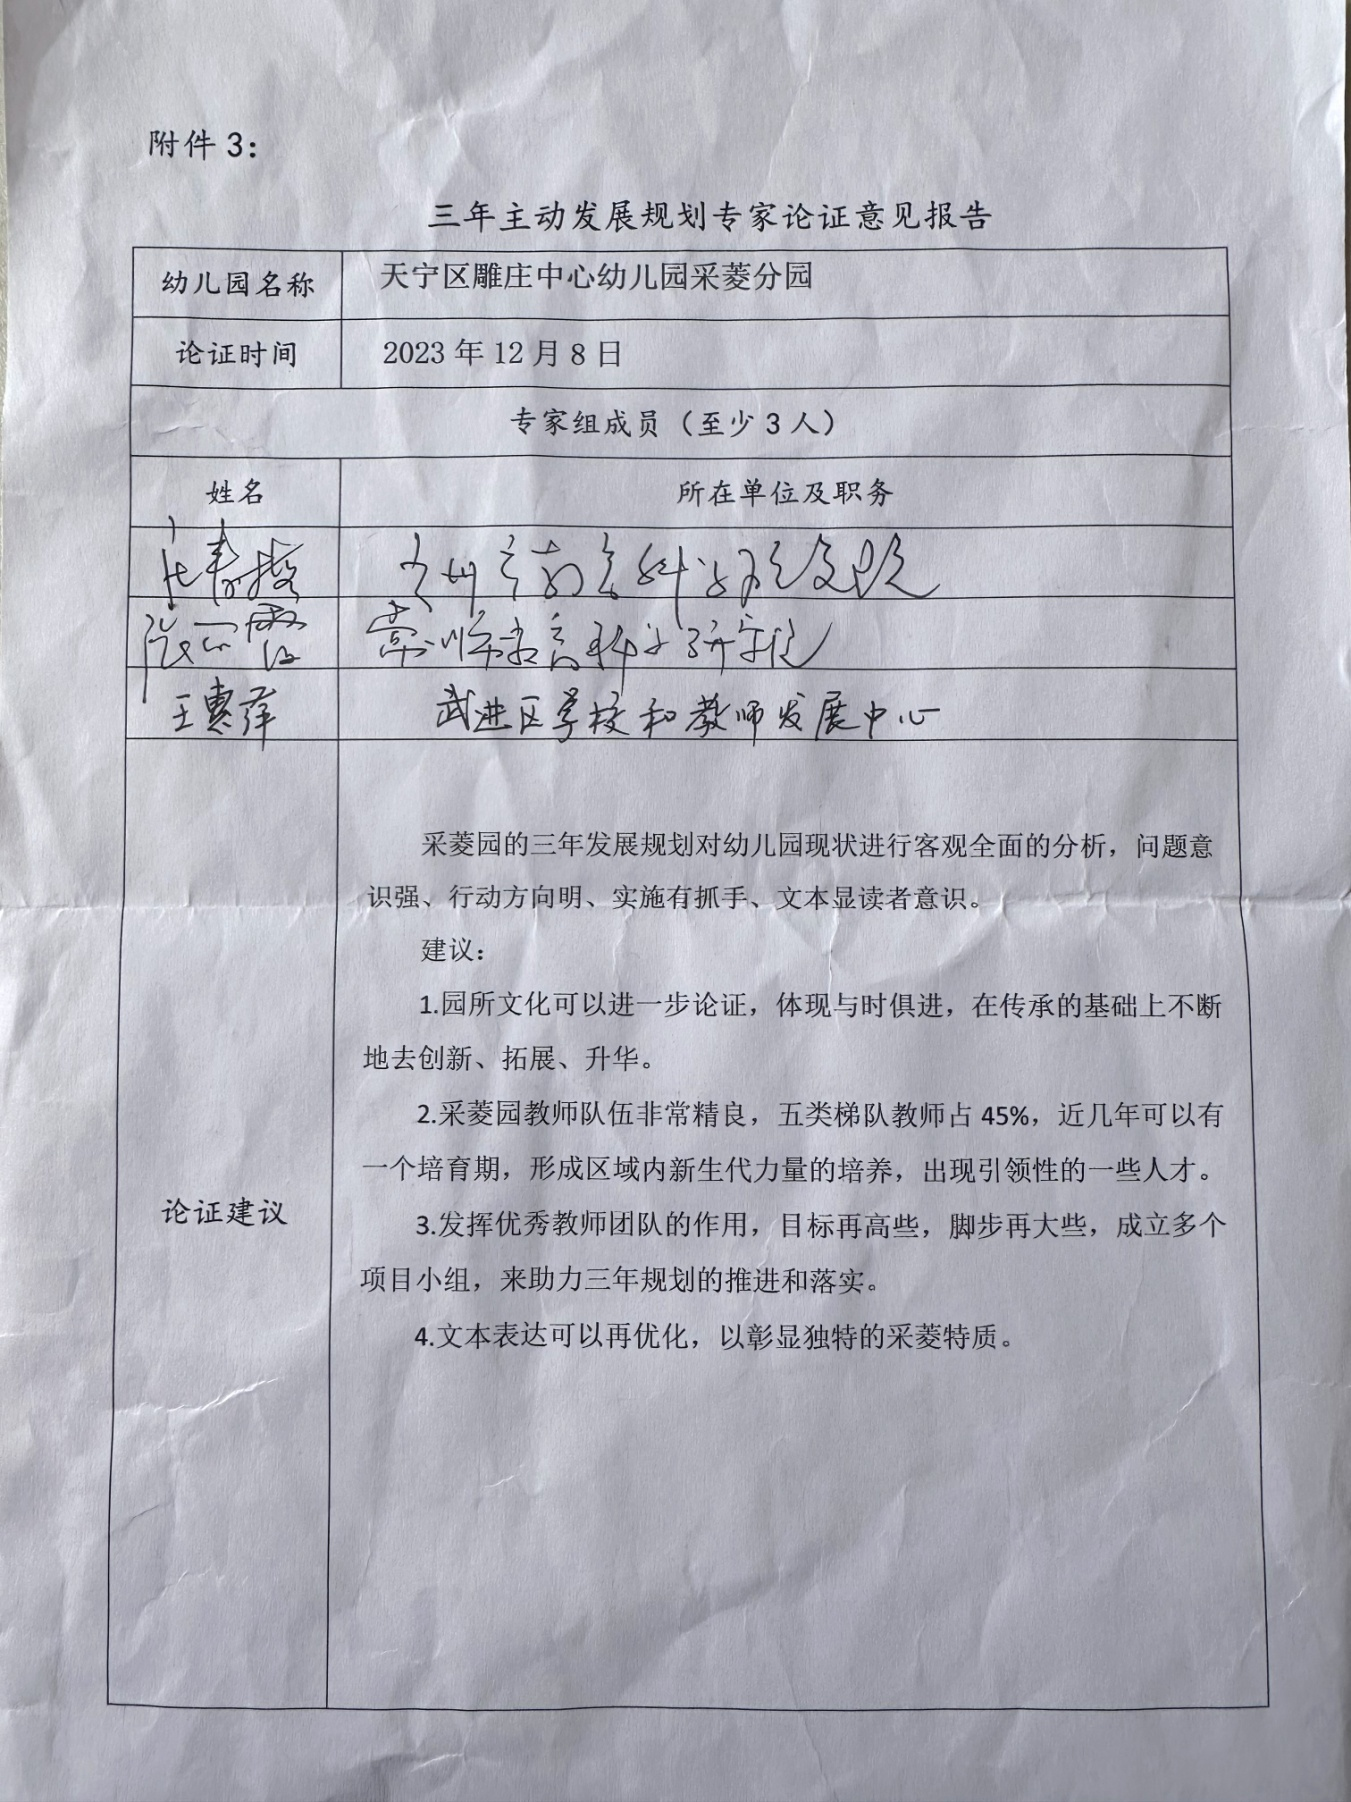 附件 3：
三年主动发展规划专家论证意见报告
幼儿园名称
天宁区雕庄中心幼儿园采菱分园
论证时间
2023 年 12 月 8 日
专家组成员（至少 3 人）
姓名
所在单位及职务
常州市教育科学研究院
王惠萍
武进区学校和教师发展中心
采菱园的三年发展规划对幼儿园现状进行客观全面的分析，问题意
识强、行动方向明、实施有抓手、文本显读者意识。
建议：
1.园所文化可以进一步论证，体现与时俱进，在传承的基础上不断
地去创新、拓展、升华。
2.采菱园教师队伍非常精良，五类梯队教师占 45%，近几年可以有
一个培育期，形成区域内新生代力量的培养，出现引领性的一些人才。
论证建议
3.发挥优秀教师团队的作用，目标再高些，脚步再大些，成立多个
项目小组，来助力三年规划的推进和落实。
4.文本表达可以再优化，以彰显独特的采菱特质。